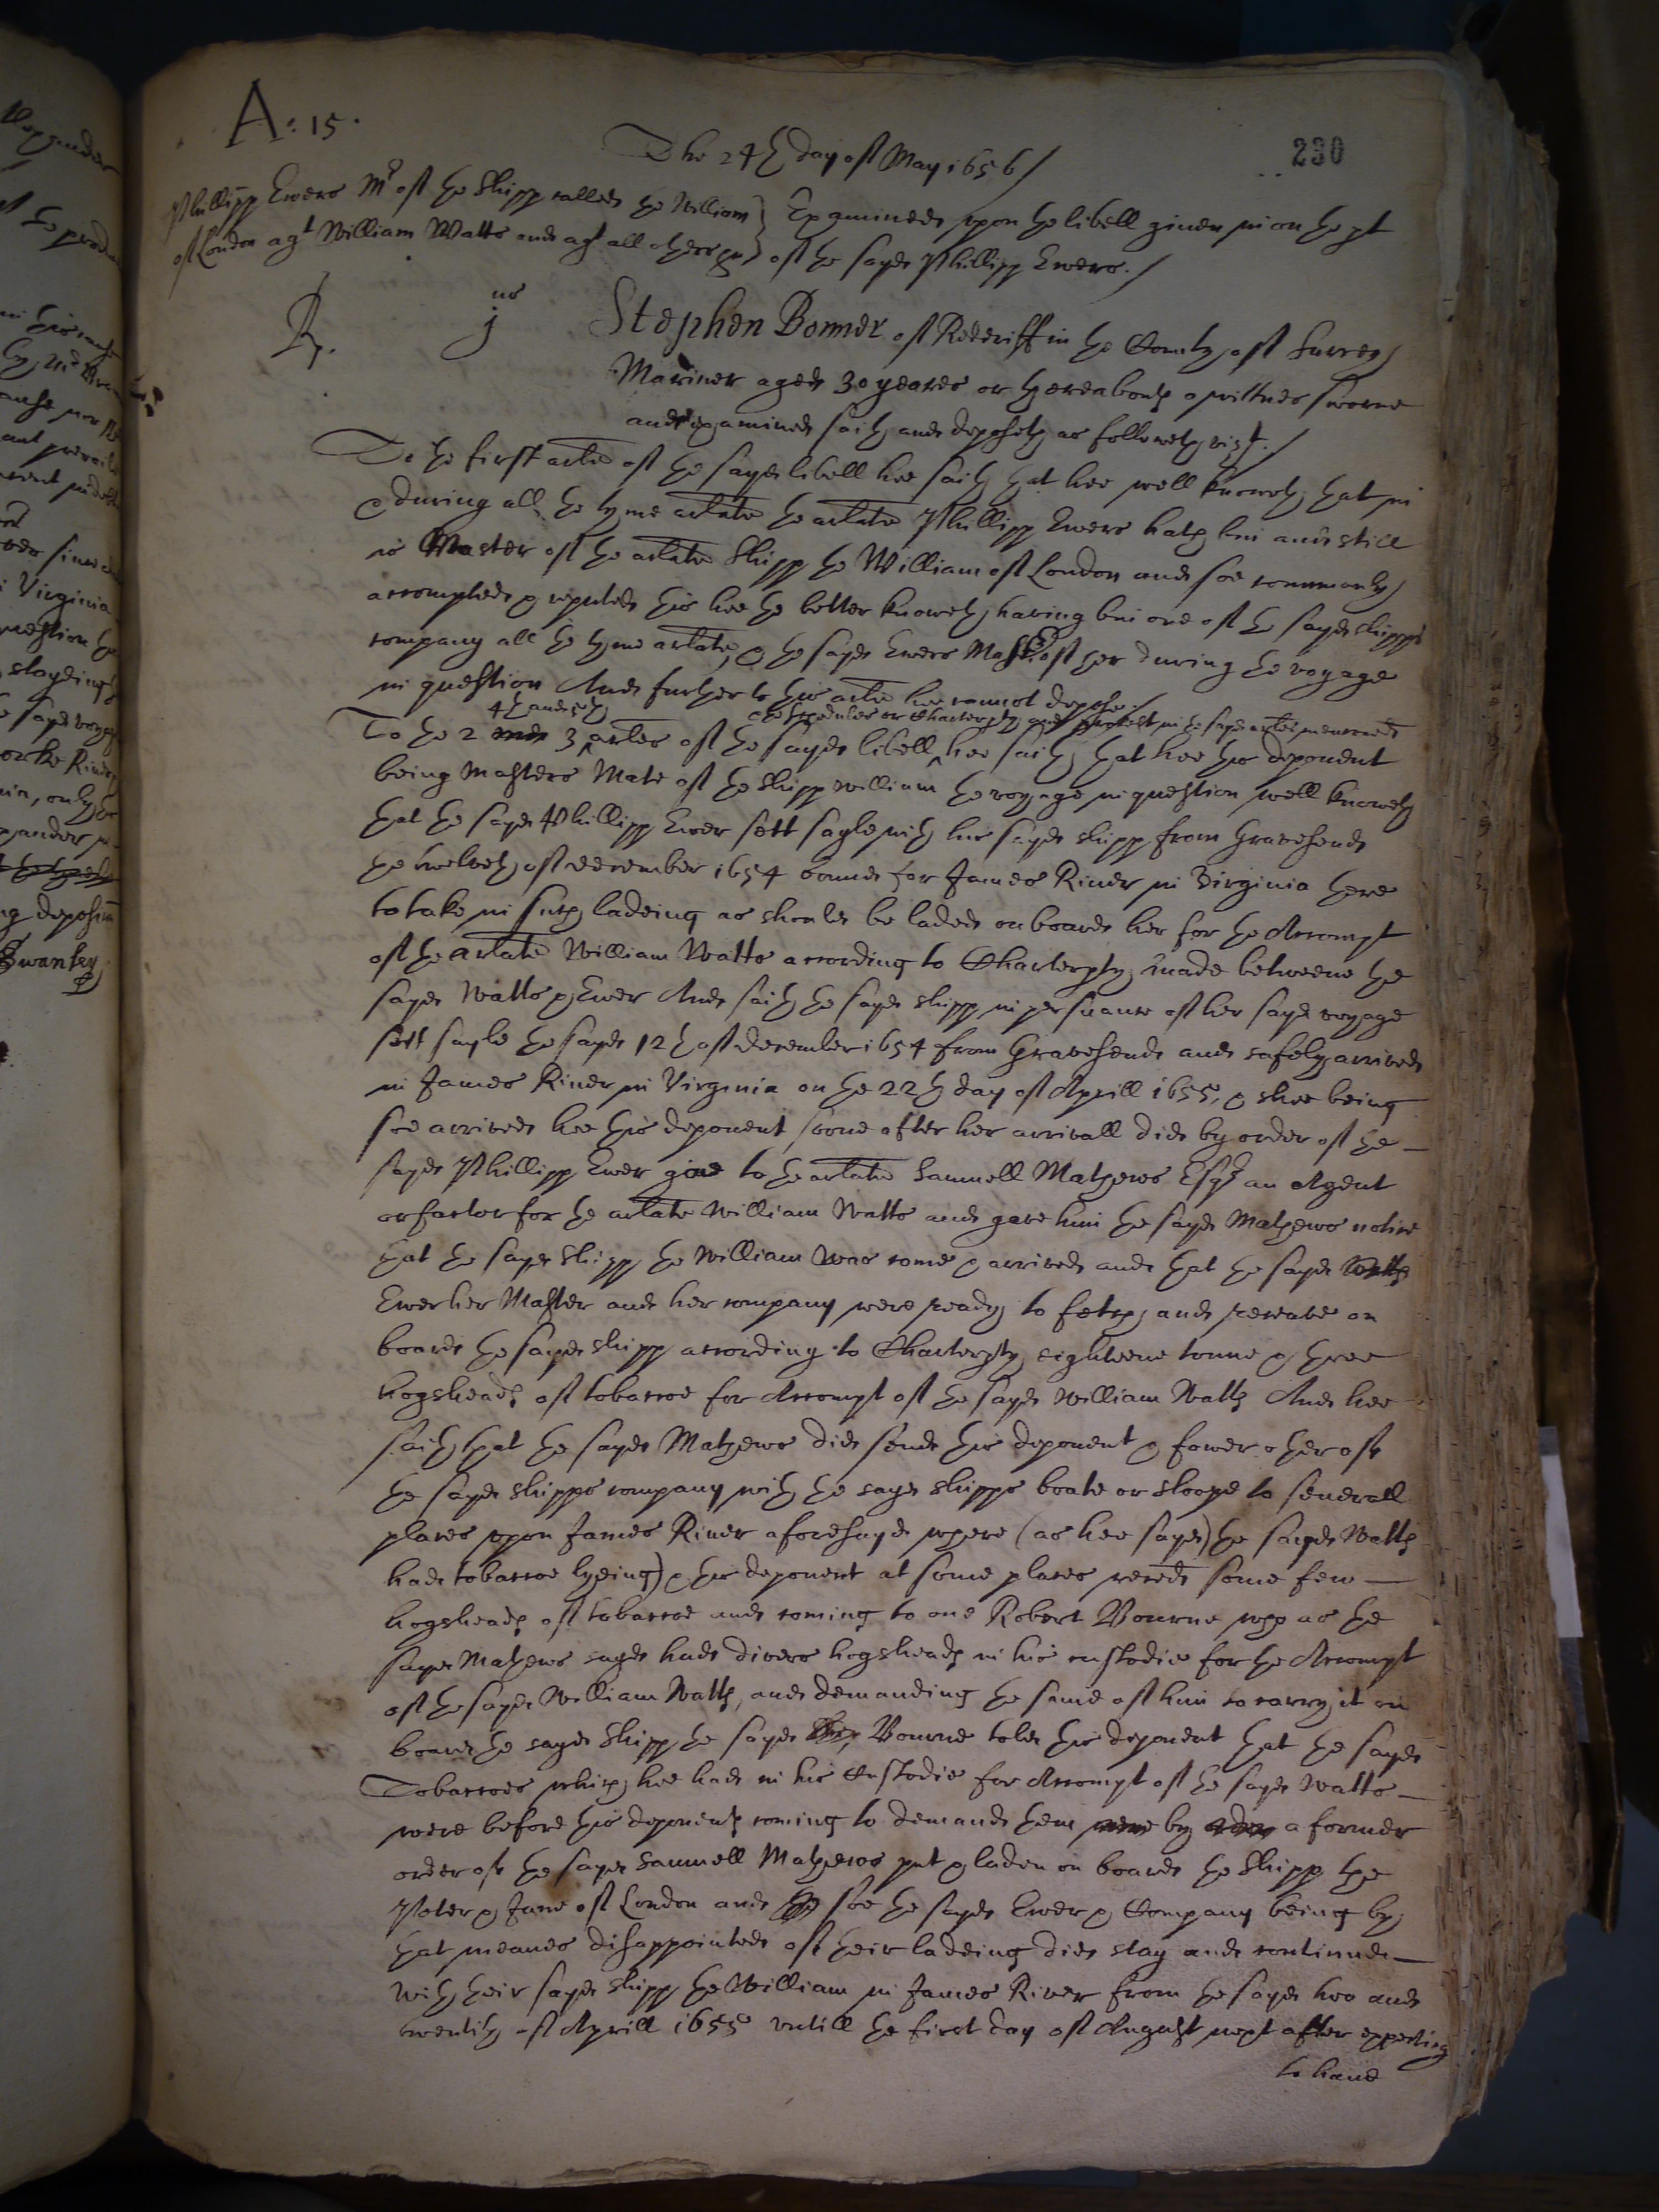 A: 15.
230
The 24th day of May 1656/
Phillipp Ewers Mr of the Shipp called the William
of London agt William Watts and agt all others &c
Examined upon the libell given in on the pt
of the sayd Phillipp Ewers./
Rp. jus
Stephen Bonner of Redriff in the County of Surrey
Mariner aged 30 yeares or thereabouts a wittnes sworne
and examined saith and deposeth as followeth vizt./
To the first arlē of the sayd libell hee saith that hee well knoweth that in
& during all the tyme arlate the arlate Phillipp Ewers hath bin and still
is Master of the arlate Shipp the William of London and soe commonly
accompted & reputed this hee the better knoweth having bin one of the sayd shipps
company all the tyme arlate, & the sayd Ewers Master of her during the voyage
in question And further to this arlē hee cannot depose./
4th and 5th
& the scedules or Charterpty and protest in the sayd arles menconed
To the 2 and 3 arles of the sayd libell hee saith that hee this deponent
being Masters Mate of the Shipp William the voyage in question well knoweth
that the sayd Phillipp Ewer sett sayle with his sayd shipp from Gravesend
the twelveth of december 1654 bound for James River in Virginia there
to take in such ladeing as should be laded on board her for the Accompt
of the arlate William Watts according to Charterpty made betweene the
sayd Watts & Ewer And saith the sayd shipp in persuance of her sayd voyage
sett sayle the sayd 12th of december 1654 from Gravesend and safely arrived
in James River in Virginia on the 22th day of Aprill 1655, & shee being
soe arrived hee this deponent soone after her arrivall did by order of the
sayd Phillipp Ewer give to the arlate Samuell Mathews Esqr an Agent
or factor for the arlate William Watts and gave him the sayd Mathews notice
that the sayd Shipp the William was come & arrived and that the sayd Watts
Ewer her Master and her company were ready to fetch and receave on
board the sayd shipp according to Charterpty eighteene tonne & three
hogsheads of tobaccoe for Accompt of the sayd William Watts And hee
saith that the sayd Mathews did send this deponent & fower other of
the sayd shipps company with the sayd shipps boate or sloope to severall
places upon James River aforesayd where (as hee sayd) the sayd Watts
had tobaccoe lyeing) & this deponent at some places received some few
hogsheads of tobaccoe and coming to one Robert Bourne who as the
sayd Mathews sayd had divers hogsheads in his custodie for the Accompt
of the sayd William Watts, and demanding the same of him to carry it on
board the sayd Shipp the sayd Bourne told this deponent that the sayd
Tobaccoes which hee had in his Custodie for Accompt of the sayd Watts
were before this deponents coming to demand them were by order a former
order of the sayd Samuell Mathews put & laden on board the Shipp the
Peter & Jane of London and soe the sayd Ewer & Company being by
that meanes disappointed of their ladeing did stay and continued
with their sayd shipp the William in James River from the sayd two and
twentith of Aprill 1655 untill the first day of August next after expecting
to have